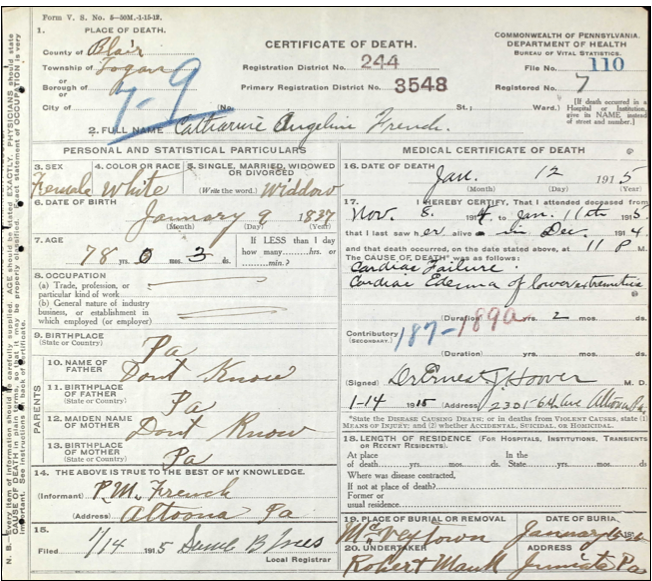 Form V. S. No. 5—50M.-1-15-13.
1. PLACE OF DEATH.
County of Blair
Township of Logan
or
Borough of
or
City of
7-9
(No.
St.;
Ward.)
CERTIFICATE OF DEATH.
Registration District No. 244
Primary Registration District No. 3548
COMMONWEALTH OF PENNSYLVANIA.
DEPARTMENT OF HEALTH
BUREAU OF VITAL STATISTICS.
File No. 110
Registered No. 7
[If death occurred in a
Hospital or Institution,
give its NAME instead
of street and number.]
2. FULL NAME Catharine Angeline French.
PERSONAL AND STATISTICAL PARTICULARS
3. SEX
Female
4. COLOR OR RACE
White
5. SINGLE, MARRIED, WIDOWED
OR DIVORCED
(Write the word.) Widdow
6. DATE OF BIRTH
January 9 1837
(Month) (Day) (Year)
7. AGE
78 yrs. 0 mos. 3 ds.
If LESS than 1 day
how many......hrs. or
......min.?
8. OCCUPATION
(a) Trade, profession, or
particular kind of work
(b) General nature of industry
business, or establishment in
which employed (or employer)
9. BIRTHPLACE
(State or Country)
Pa
PARENTS
10. NAME OF
FATHER
Dont Know
11. BIRTHPLACE
OF FATHER
(State or Country)
Pa
12. MAIDEN NAME
OF MOTHER
Dont Know
13. BIRTHPLACE
OF MOTHER
(State or Country)
Pa
14. THE ABOVE IS TRUE TO THE BEST OF MY KNOWLEDGE.
(Informant) P. M. French
(Address) Altoona Pa
15.
Filed 1/14 1915
Local Registrar
MEDICAL CERTIFICATE OF DEATH
16. DATE OF DEATH
Jan. 12 1915
(Month) (Day) (Year)
17. I HEREBY CERTIFY, That I attended deceased from
Nov. 5. 1914, to Jan. 11th 1915,
that I last saw her alive in Dec. 1914
and that death occurred, on the date stated above, at 11 P M.
The CAUSE OF DEATH* was as follows:
Cardiac Failure.
Cardiac Edema of lower extremities
(Duration) yrs. 2 mos. ds.
187-189a
Contributory
(SECONDARY.)
(Duration) yrs. mos. ds.
(Signed) Dr Ernest J Hoover M. D.
1-14 1915 (Address) 2301-6th Ave Altoona Pa.
*State the DISEASE CAUSING DEATH; or in deaths from VIOLENT CAUSES, state (1)
MEANS OF INJURY; and (2) whether ACCIDENTAL, SUICIDAL, OR HOMICIDAL.
18. LENGTH OF RESIDENCE (FOR HOSPITALS, INSTITUTIONS, TRANSIENTS
OR RECENT RESIDENTS).
At place
of death......yrs. mos. ds.
In the
State......yrs. mos. ds.
Where was disease contracted,
If not at place of death?
Former or
usual residence.
19. PLACE OF BURIAL OR REMOVAL
McVeytown
DATE OF BURIA
January
20. UNDERTAKER
Robert Mauk
ADDRESS
Juniata Pa
N. B. Every item of information should be carefully supplied. AGE should be stated EXACTLY. PHYSICIANS should state
CAUSE OF DEATH in plain terms, so that it may be properly classified. Exact statement of OCCUPATION is very
important. See instructions on back of certificate.